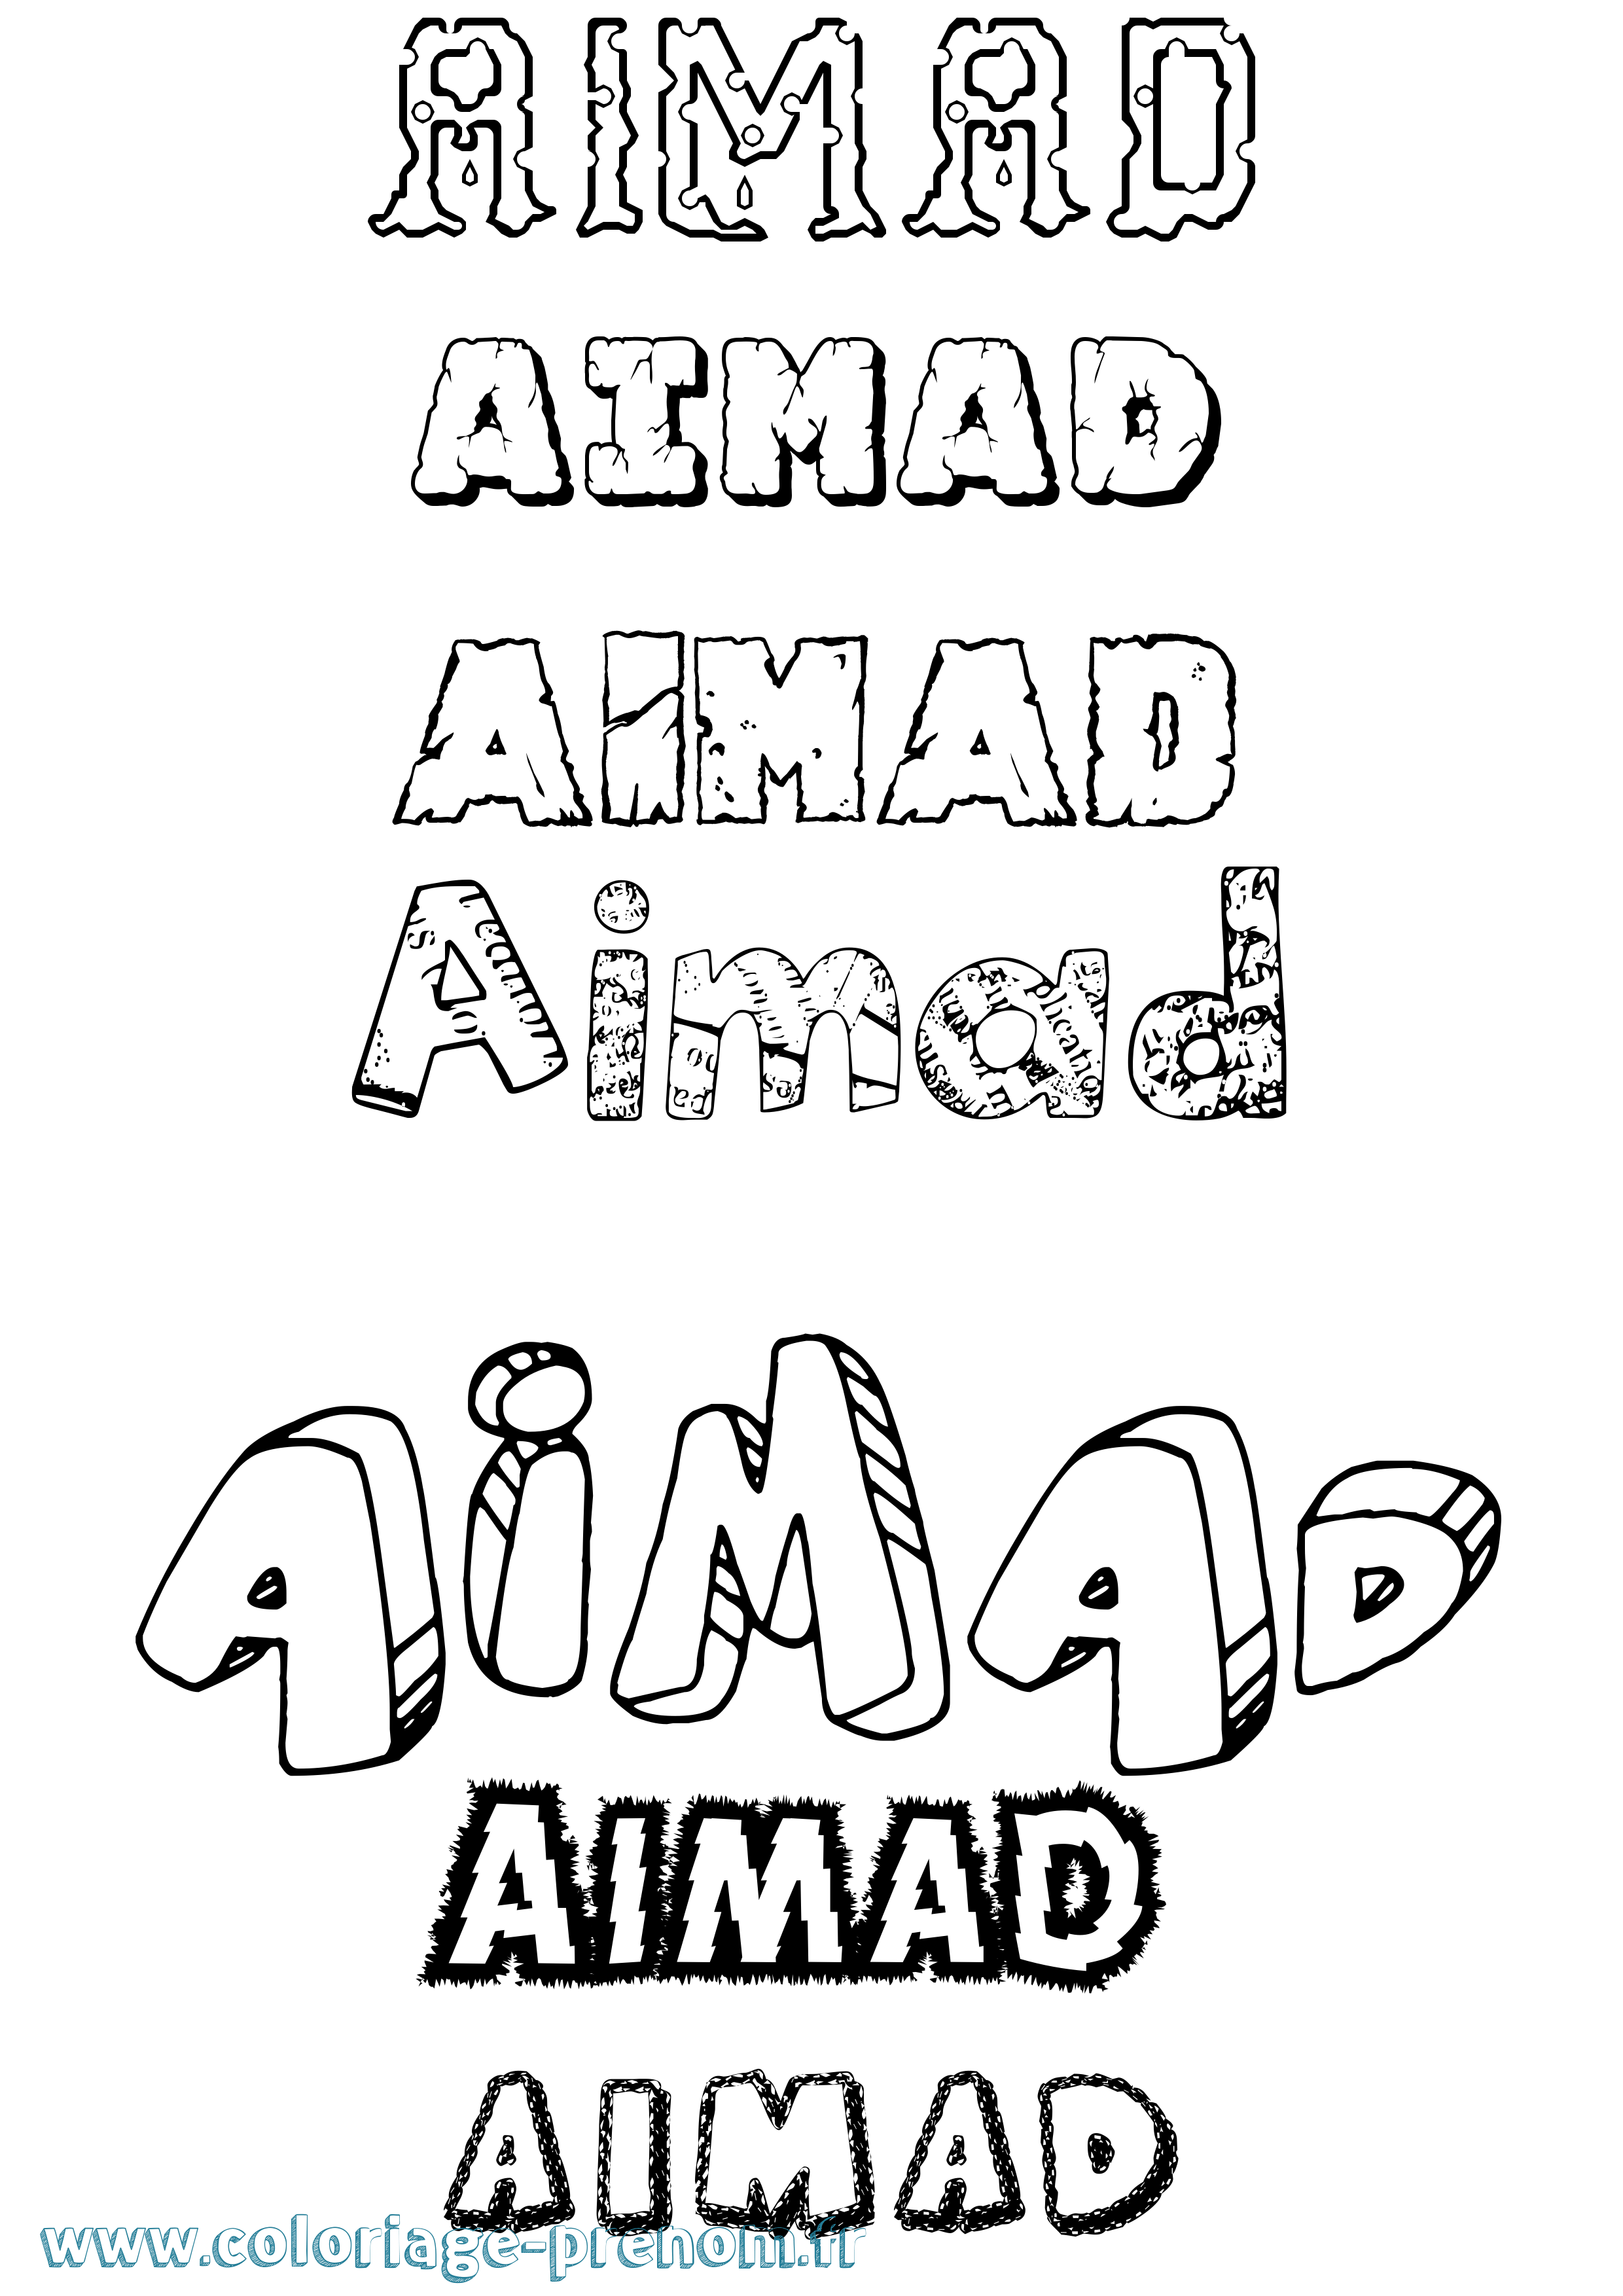 AIMAD
AIMAD
AiMAD
Aimad
AiMAD
AIMAD
AIMAD
www.coloriage-prenom.fr